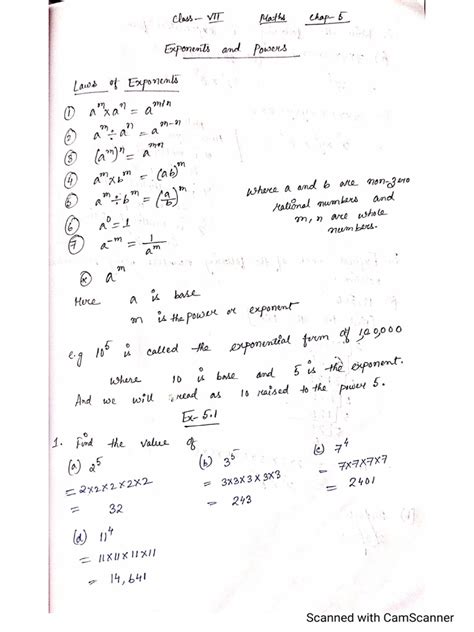 Class - VII Maths Chap - 5
Exponents and Powers
Laws of Exponents
① aᵐ×aⁿ = aᵐ⁺ⁿ
② aᵐ÷aⁿ = aᵐ⁻ⁿ
③ (aᵐ)ⁿ = aᵐⁿ
④ aᵐ×bᵐ = (ab)ᵐ
⑤ aᵐ÷bᵐ = (a/b)ᵐ
where a and b are non-zero
rational numbers and
m, n are whole
numbers.
⑥ a⁰ = 1
⑦ a⁻ᵐ = 1/aᵐ
aᵐ
Here a is base
m is the power or exponent
e.g 10⁵ is called the exponential form of 1,00,000
where 10 is base and 5 is the exponent.
And we will read as 10 raised to the power 5.
Ex- 5.1
1. Find the value of
(a) 2⁵ (b) 3⁵ (c) 7⁴
= 2×2×2×2×2 = 3×3×3×3×3 = 7×7×7×7
= 32 = 243 = 2401
(d) 11⁴
= 11×11×11×11
= 14,641
Scanned with CamScanner